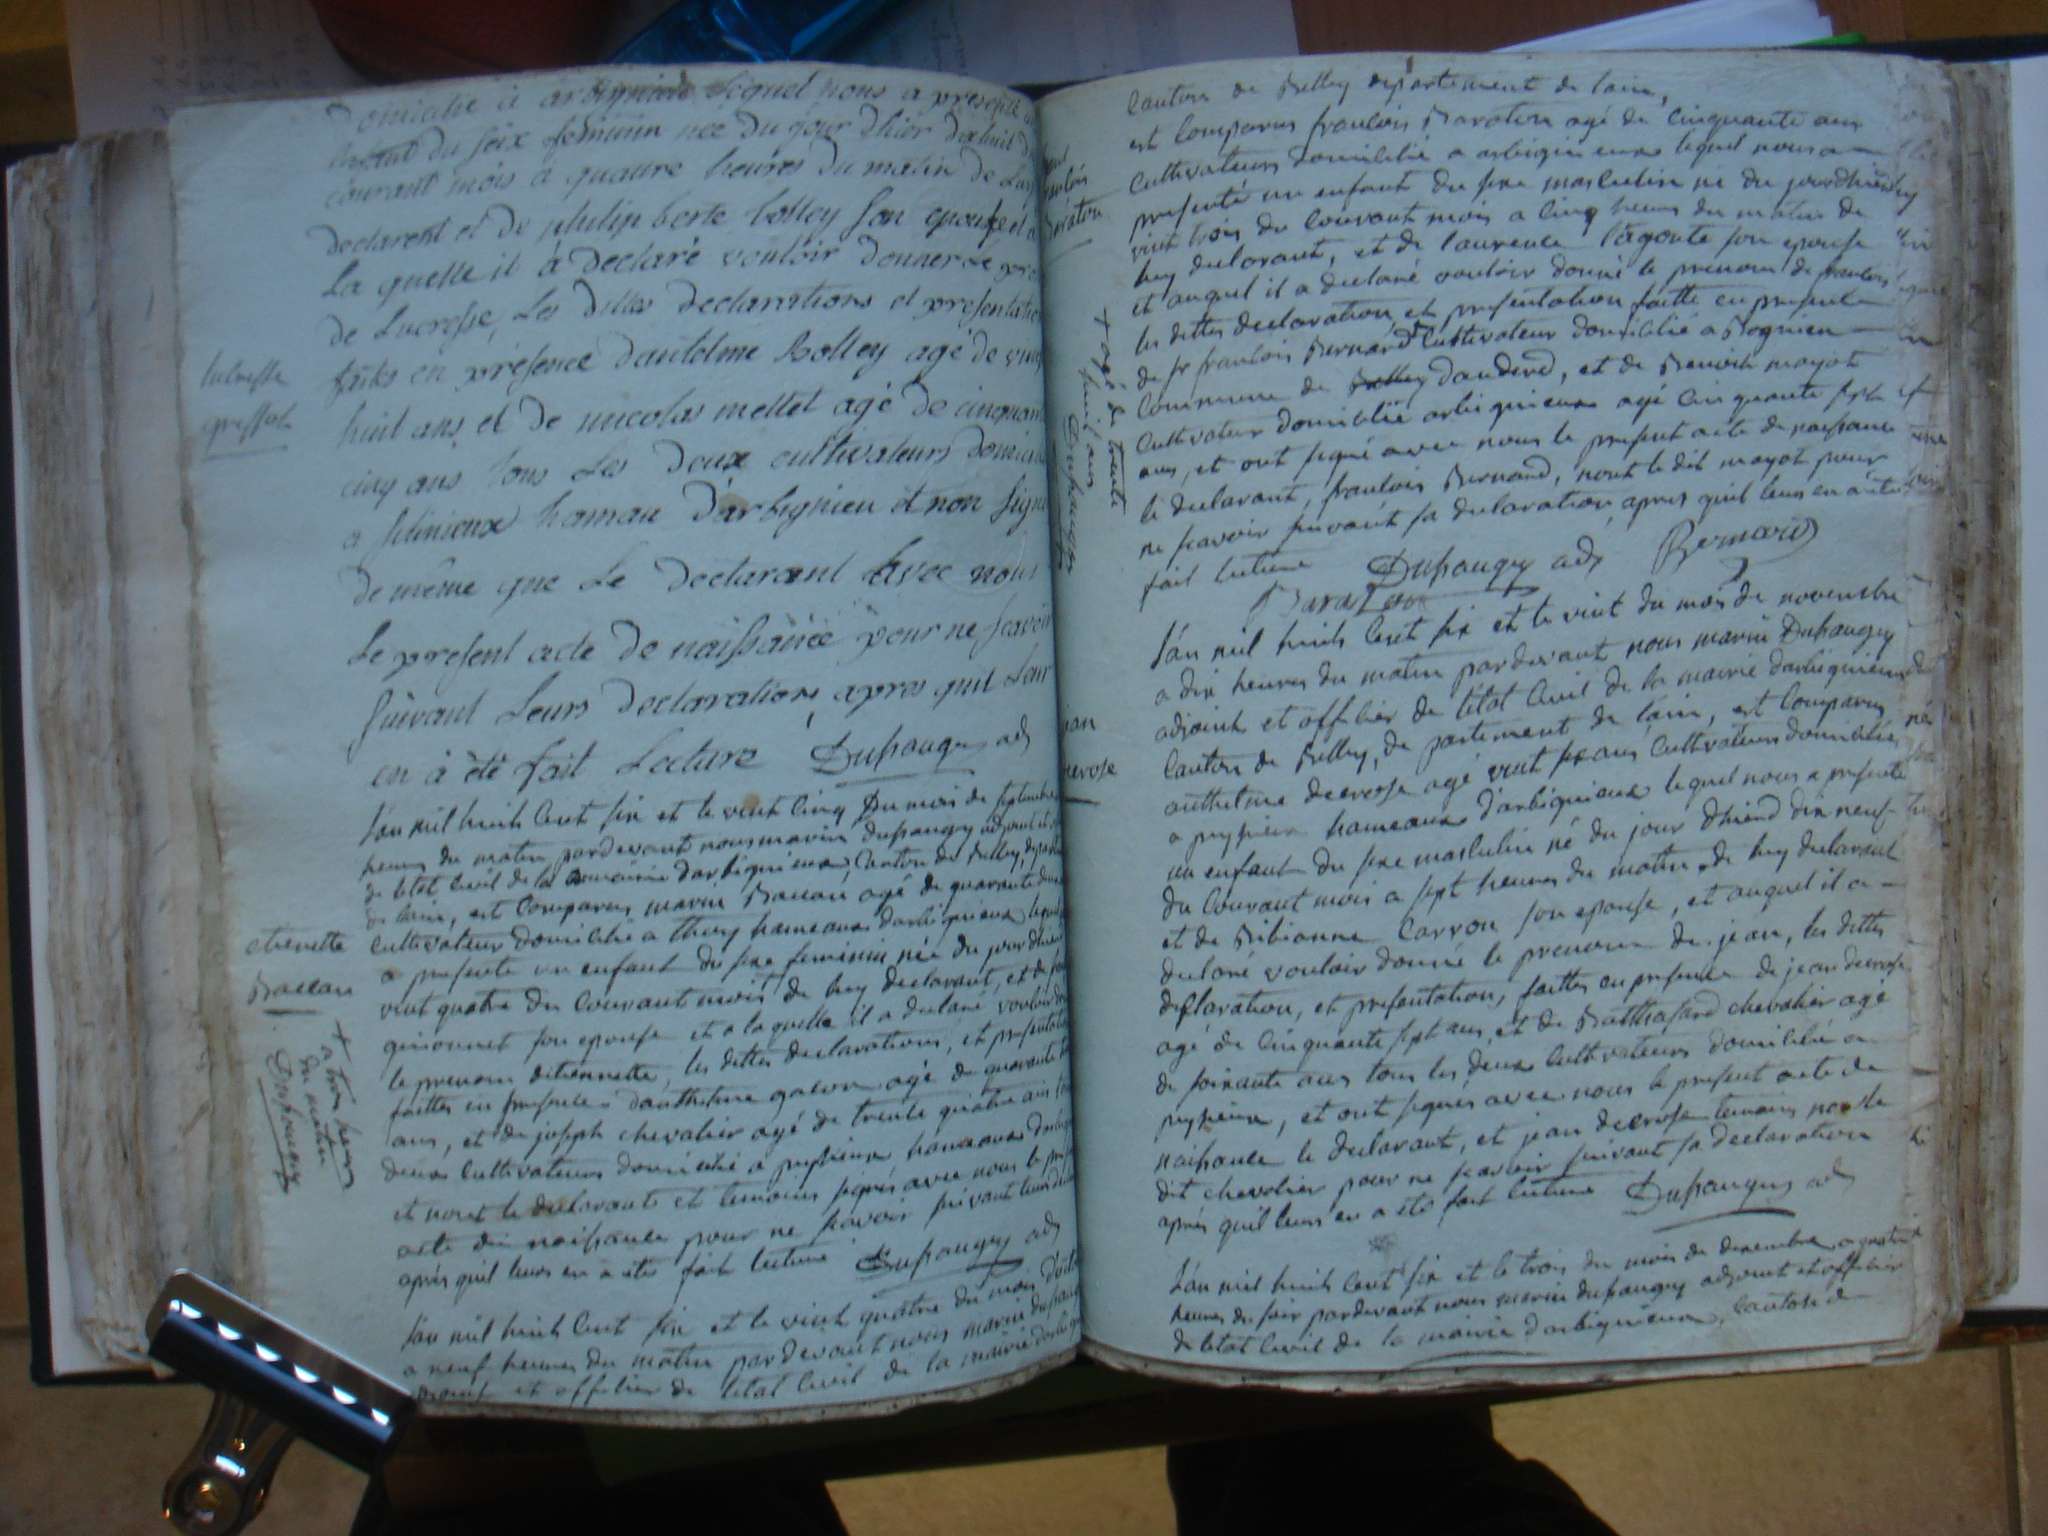 Domicilié à arbignieu Lequel nous a presenté un
enfant du seix feminin née du jour d'hier dixhuit du
courant mois à quatre heures du matin de Luy
declarent et de philiperte bolley son epouse et a
La quelle il à declaré vouloir donner Le pre
de Lucresse, Les dittes declarations et presentatio
faits en présence dantelme Bolley agé de vint
huit ans et de nucolas mettet agé de cinquant
cinq ans tous Les deux cultivateurs domicili
a hameau d'arbignieu et non signé
de même que Le declarent avec nous
Le present acte de naissance pour ne scavoir
suivant Leurs declarations apres quil Leur
en à été fait Lecture Dupaugey adj
lucresse
l'an mil huit cent six et le vint cinq du mois de septembre
heures du matin pardevant nous marin dupaugey adjoint et
de létat civil de la mairie darbignieux canton de Belley depar
de lain, est comparus marin Baccou agé de quarante deux
cultivateur domicilié a thoy hameaux darbignieux lequel
a presenté un enfant du sexe feminin née du jour dhier
vint quatre du courant mois de luy declarant, et de
son epouse et a la quelle il a declaré vouloir don
le prenom detiennette, les dittes declarations, et presentatio
faittes en presence danthelme agé de quarante
ans, et de joseph chevalier agé de trente quatre ans
deux cultivateurs domicilié a peyzieux hameaux darbig
et nont le declarants et temoins signés avec nous le pres
acte de naissance pour ne scavoir suivant leurs decla
après quil leurs en a ete fait lecture Dupaugey adj
etiennette
+ a trois heures
du matin
Dupaugey
l'an mil huit cent six et le vint quatre du mois d'octo
a neuf heures du matin pardevant nous marin dupau
adjoint et officier de létat civil de la mairie darbig
canton de Belley departement de lain,
est comparus francois Baraton agé de cinquante ans
cultivateurs domicilié a arbignieux lequel nous a
presenté un enfant du sexe masculin né du jour dhier
vint trois du courant mois a cinq heures du matin de
luy declarant, et de laurence lagoute son epouse
et auquel il a declaré vouloir donné le prenom de francois
les dittes declaration, et presentation faitte en presence
de sr francois Bernard + cultivateur domicilié a Rognieu
commune de Belley dandert, et de Benoit mayot
cultivateur domicilié arbignieux agé cinquante sept
ans, et ont signé avec nous le present acte de naissance
le declarant, francois Bernard, nont le dit mayot pour
ne scavoir suivant sa declaration, apres quil leurs en a ete
fait lecture Dupaugey adj Bernard
Baraton
+ agé de trente
huit ans
Dupaugey
l'an mil huit cent six et le vint du mois de novembre
a dix heures du matin pardevant nous marin Dupaugey
adjoint et officier de létat civil de la mairie darbignieux
canton de Belley, departement de lain, est comparus
anthelme decrose agé vint six ans cultivateurs domiciliés
a peyzieu hameaux d'arbignieux lequel nous a presenté
un enfant du sexe masculin né du jour dhier dix neuf
du courant mois a sept heures du matin de luy declarant
et de Bibianne Carron son epouse, et auquel il a
declaré vouloir donné le prenom de jean, les dittes
declaration, et presentation, faittes en presence de jean decrose
agé de cinquante sept ans et de Batthasard chevalier agé
de soixante ans tous les deux cultivateurs domicilié a
peyzieux, et ont signés avec nous le present acte de
naissance le declarant, et jean decrose temoins non le
dit chevalier pour ne scavoir suivant sa declaration
après quil leurs en a ete fait lecture Dupaugey adj
l'an mil huit cent six et le trois du mois de decembre a quatre
heures du soir pardevant nous marin dupaugey adjoint et officier
de létat civil de la mairie d'arbignieux, canton de